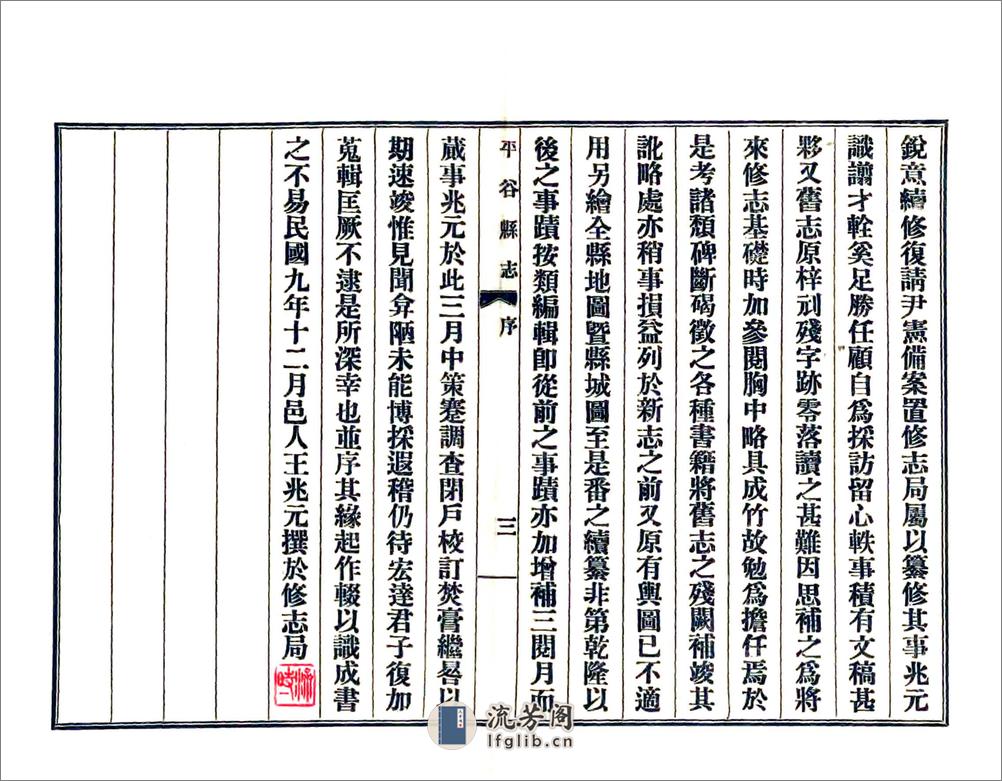 銳意續修復請尹憲備案置修志局屬以纂修其事兆元
識譾才輇奚足勝任顧自爲採訪留心軼事積有文稿甚
夥又舊志原梓刓殘字跡零落讀之甚難因思補之爲將
來修志基礎時加參閱胸中略具成竹故勉爲擔任焉於
是考諸頹碑斷碣徵之各種書籍將舊志之殘闕補竣其
訛略處亦稍事損益列於新志之前又原有輿圖已不適
用另繪全縣地圖暨縣城圖至是番之續纂非第乾隆以
後之事蹟按類編輯卽從前之事蹟亦加增補三閱月而
平谷縣志 序 三
蕆事兆元於此三月中策蹇調查閉戶校訂焚膏繼晷以
期速竣惟見聞弇陋未能博採遐稽仍待宏達君子復加
蒐輯匡厥不逮是所深幸也並序其緣起作輟以識成書
之不易民國九年十二月邑人王兆元撰於修志局
流芳阁
lfglib.cn